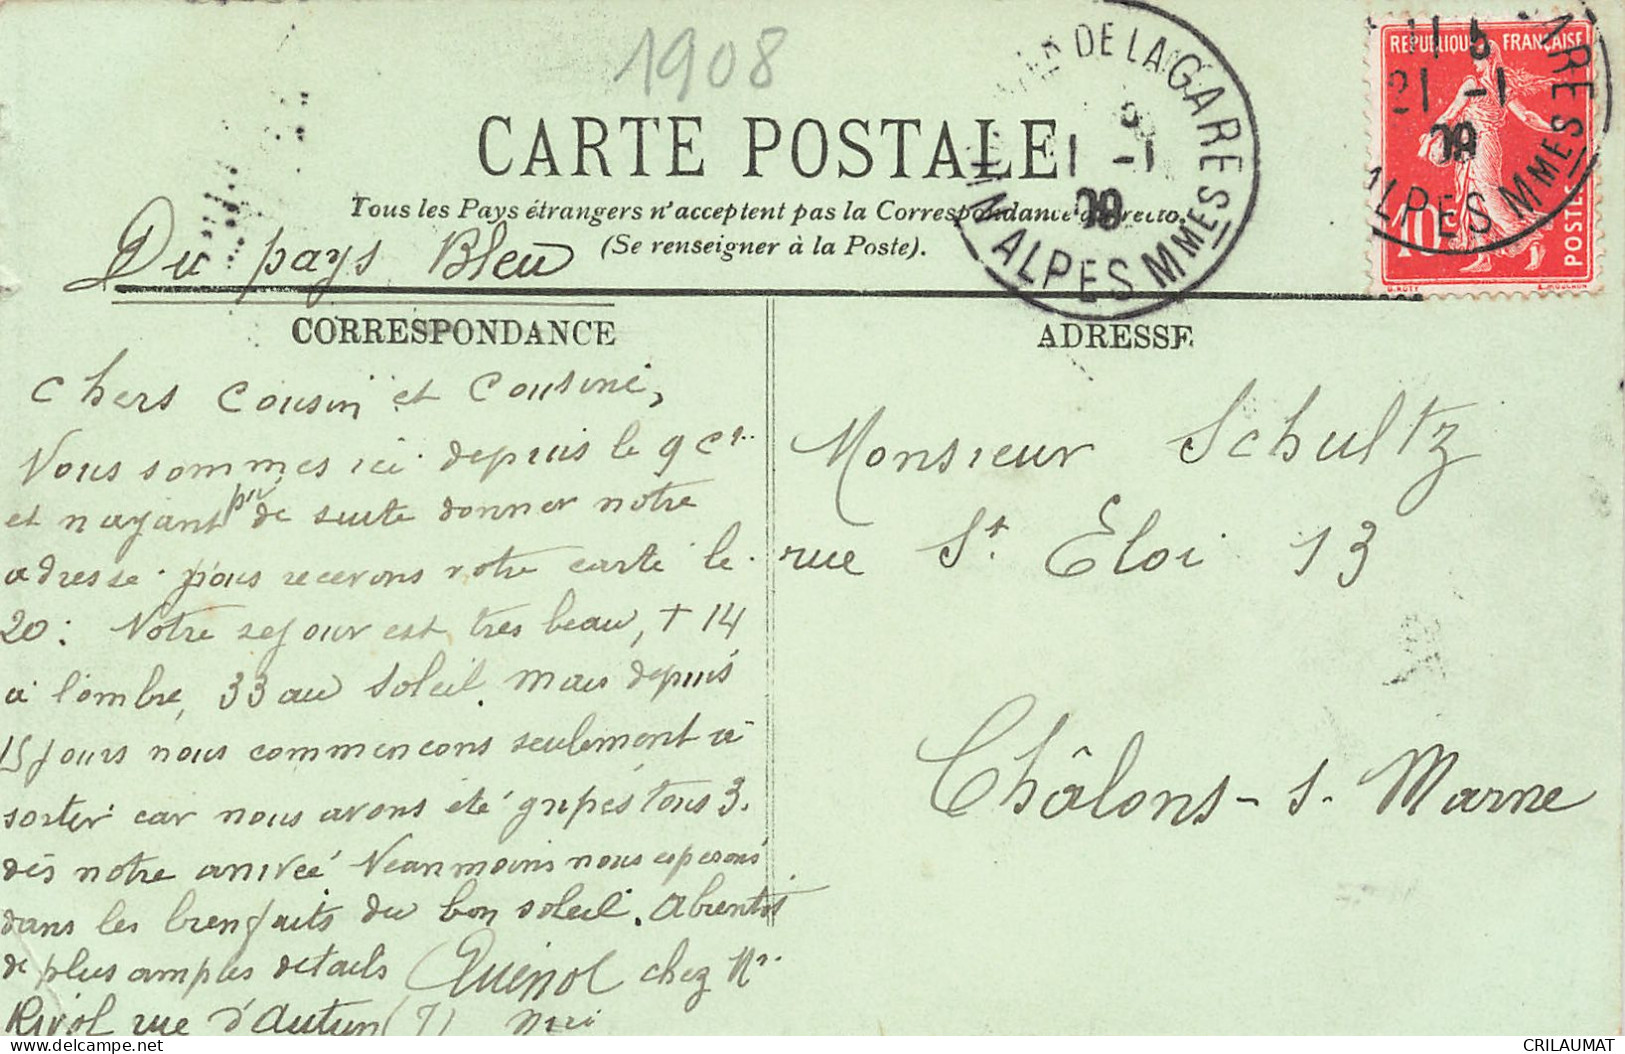 1908
CARTE POSTALE
Tous les Pays étrangers n'acceptent pas la Correspondance au recto.
(Se renseigner à la Poste).
Du pays Bleu
DE LA GARE
1 -1
09
ALPES MMES
REPUBLIQUE FRANÇAISE
11 5
21 -1
09
ARE
ALPES MMES
10c
POSTES
O. ROTY
E. MOUCHON
CORRESPONDANCE
chers cousin et cousine,
Nous sommes ici depuis le 9 ct
et n'ayant pu de suite donner notre
adresse nous recevons votre carte le
20: Notre sejour est très beau, + 14
à l'ombre, 33 au soleil. mais depuis
15 jours nous commencons seulement à
sortir car nous avons été gripés tous 3.
dès notre arrivée Néanmoins nous esperons
dans les bienfaits du bon soleil. A bientôt
de plus amples détails Quenol chez Mr
Rivol rue d'Autun (7)
ADRESSE
Monsieur Schultz
rue St. Eloi 13
Châlons-s-Marne
CRILAUMAT